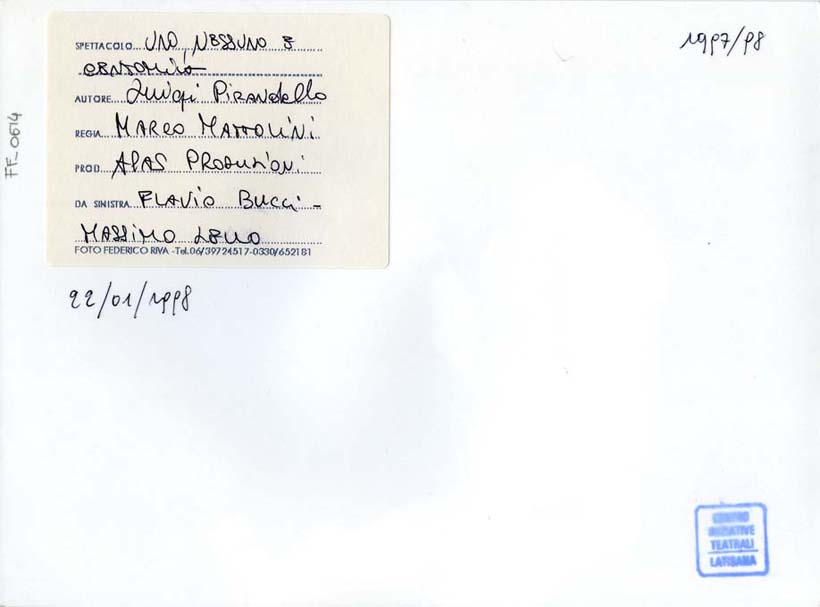 SPETTACOLO UNO, NESSUNO E
CENTOMILA
AUTORE Luigi Pirandello
REGIA MARCO MATTOLINI
PROD. APAS PRODUZIONI
DA SINISTRA FLAVIO BUCCI -
MASSIMO LELLO
FOTO FEDERICO RIVA - Tel. 06/39724517-0330/652181
22/01/1998
1997/98
FF_0614
CENTRO
INIZIATIVE
TEATRALI
LATISANA